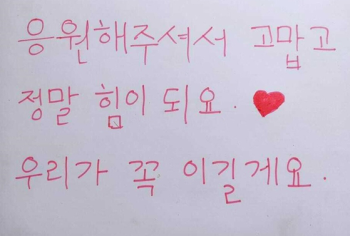 응원해주셔서 고맙고
정말 힘이 되요. ♥
우리가 꼭 이길게요.